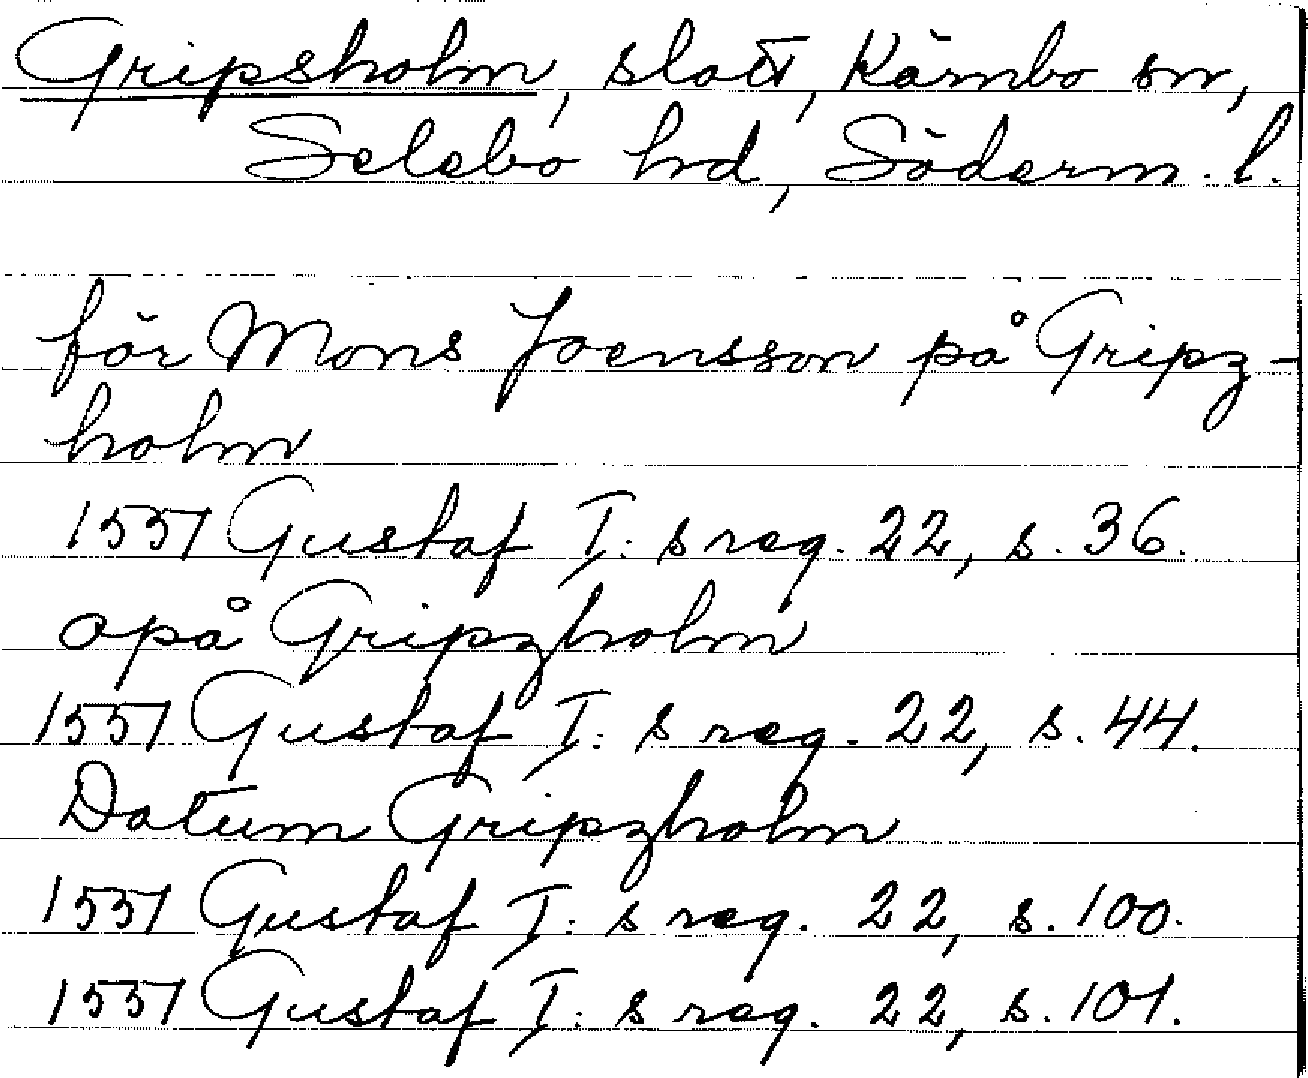 Gripsholm, slott, Kärnbo sn,
Selebo hd, Söderm. l.
för Mons Joensson på Gripz-
holm
1551 Gustaf I: s reg. 22, s. 36.
opå Gripzholm
1551 Gustaf I: s reg. 22, s. 44.
Datum Gripzholm
1551 Gustaf I: s reg. 22, s. 100.
1551 Gustaf I: s reg. 22, s. 101.